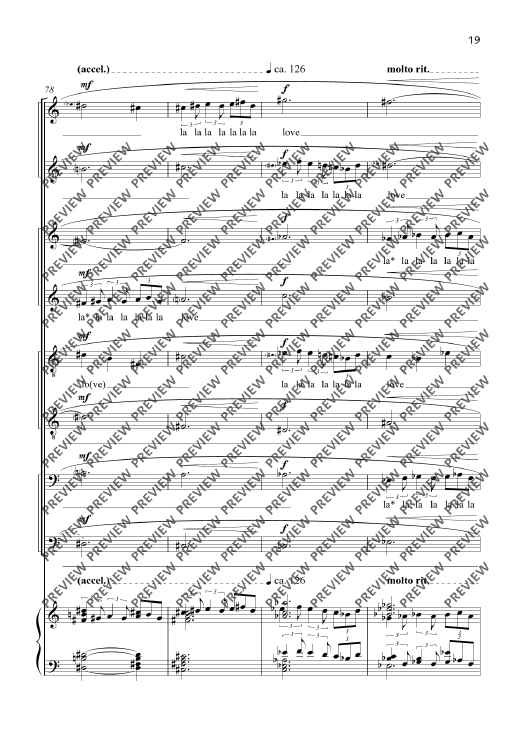 19
(accel.) ca. 126 molto rit.
78
mf
la la la la la la la love
mf f
la la la la la la la love
mf f
la* la la la la la la
mf f
la* la la la la la la love
mf f
lo(ve) la la la la la la la love
mf f
mf f
la* la la la la la la
mf f
(accel.) ca. 126 molto rit.
3 3 3 3 3 3
PREVIEW PREVIEW PREVIEW PREVIEW PREVIEW PREVIEW